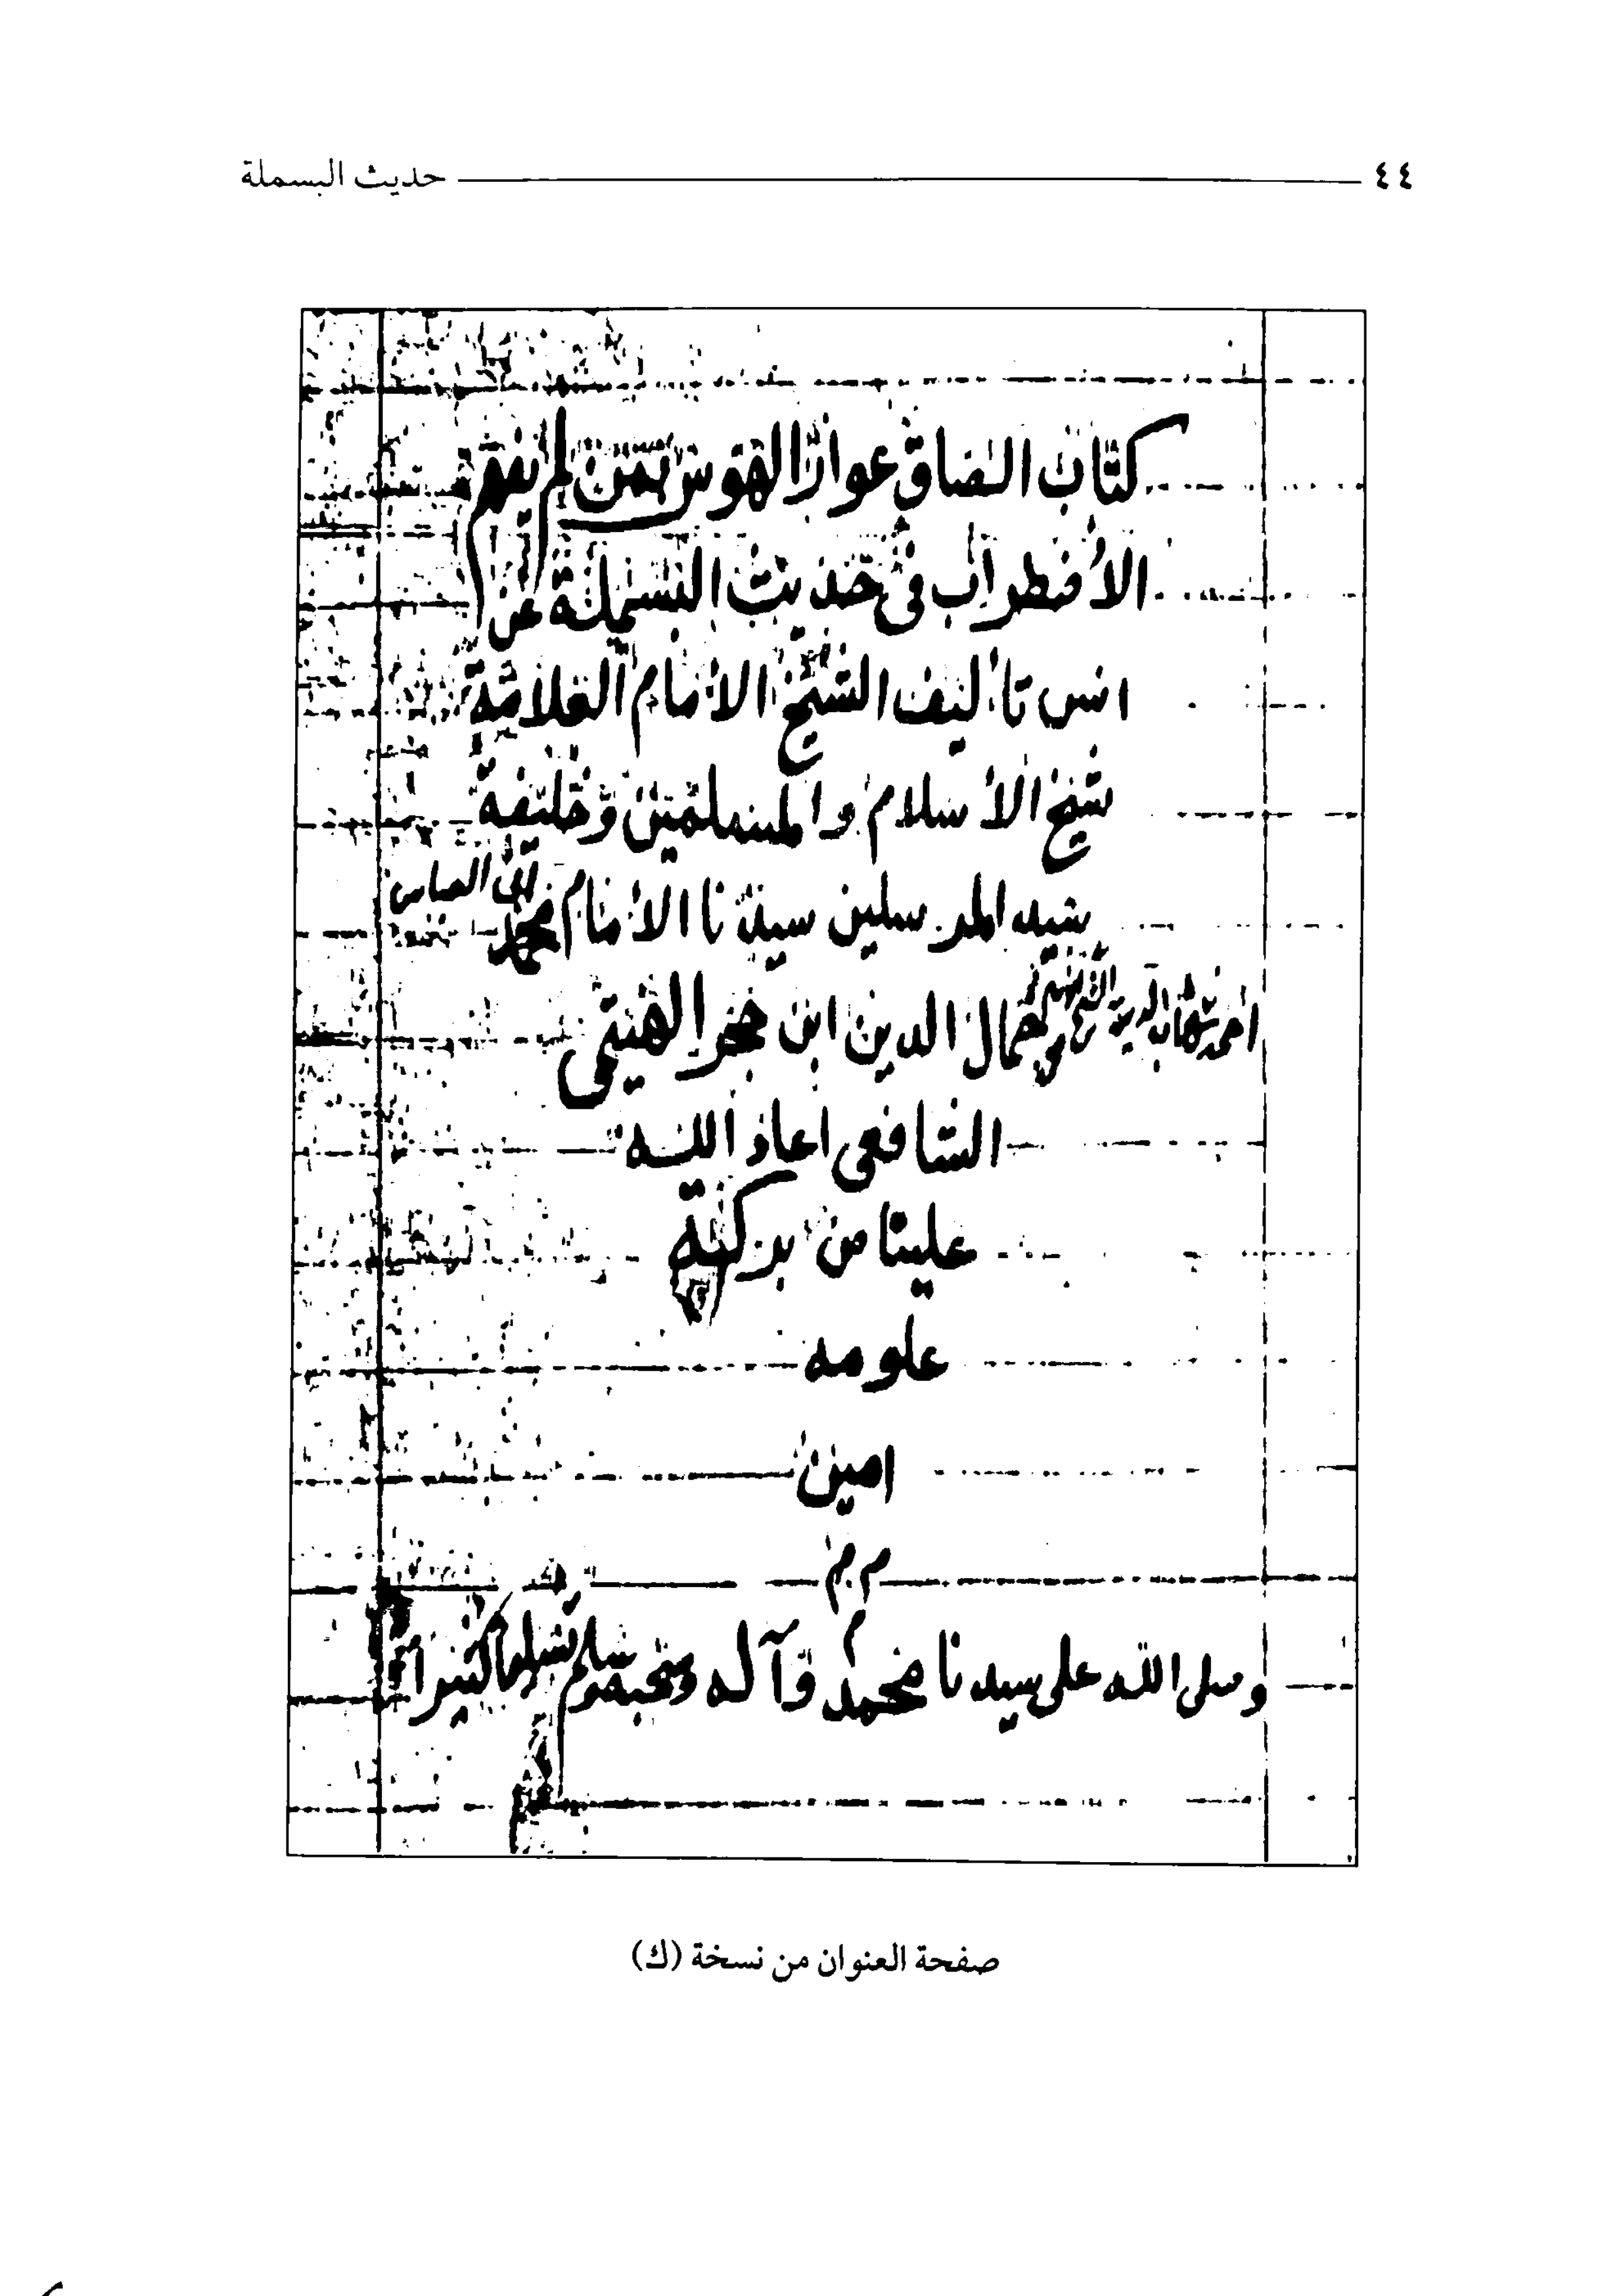 ٤٤ حديث البسملة
كتاب الصاق عوار الهوس بمن لم يفهم
الاضطراب في حديث البسملة عن
انس تاليف الشيخ الامام العلامة
شيخ الاسلام والمسلمين وخليفة
سيد المرسلين سيدنا الامام ابي العباس
احمد شهاب الدين جمال الدين ابن حجر الهيتمي
الشافعي اعاد الله
علينا من بركة
علومه
امين
م م م
وصلى الله على سيدنا محمد وآله وصحبه وسلم تسليما كثيرا
صفحة العنوان من نسخة (ك)